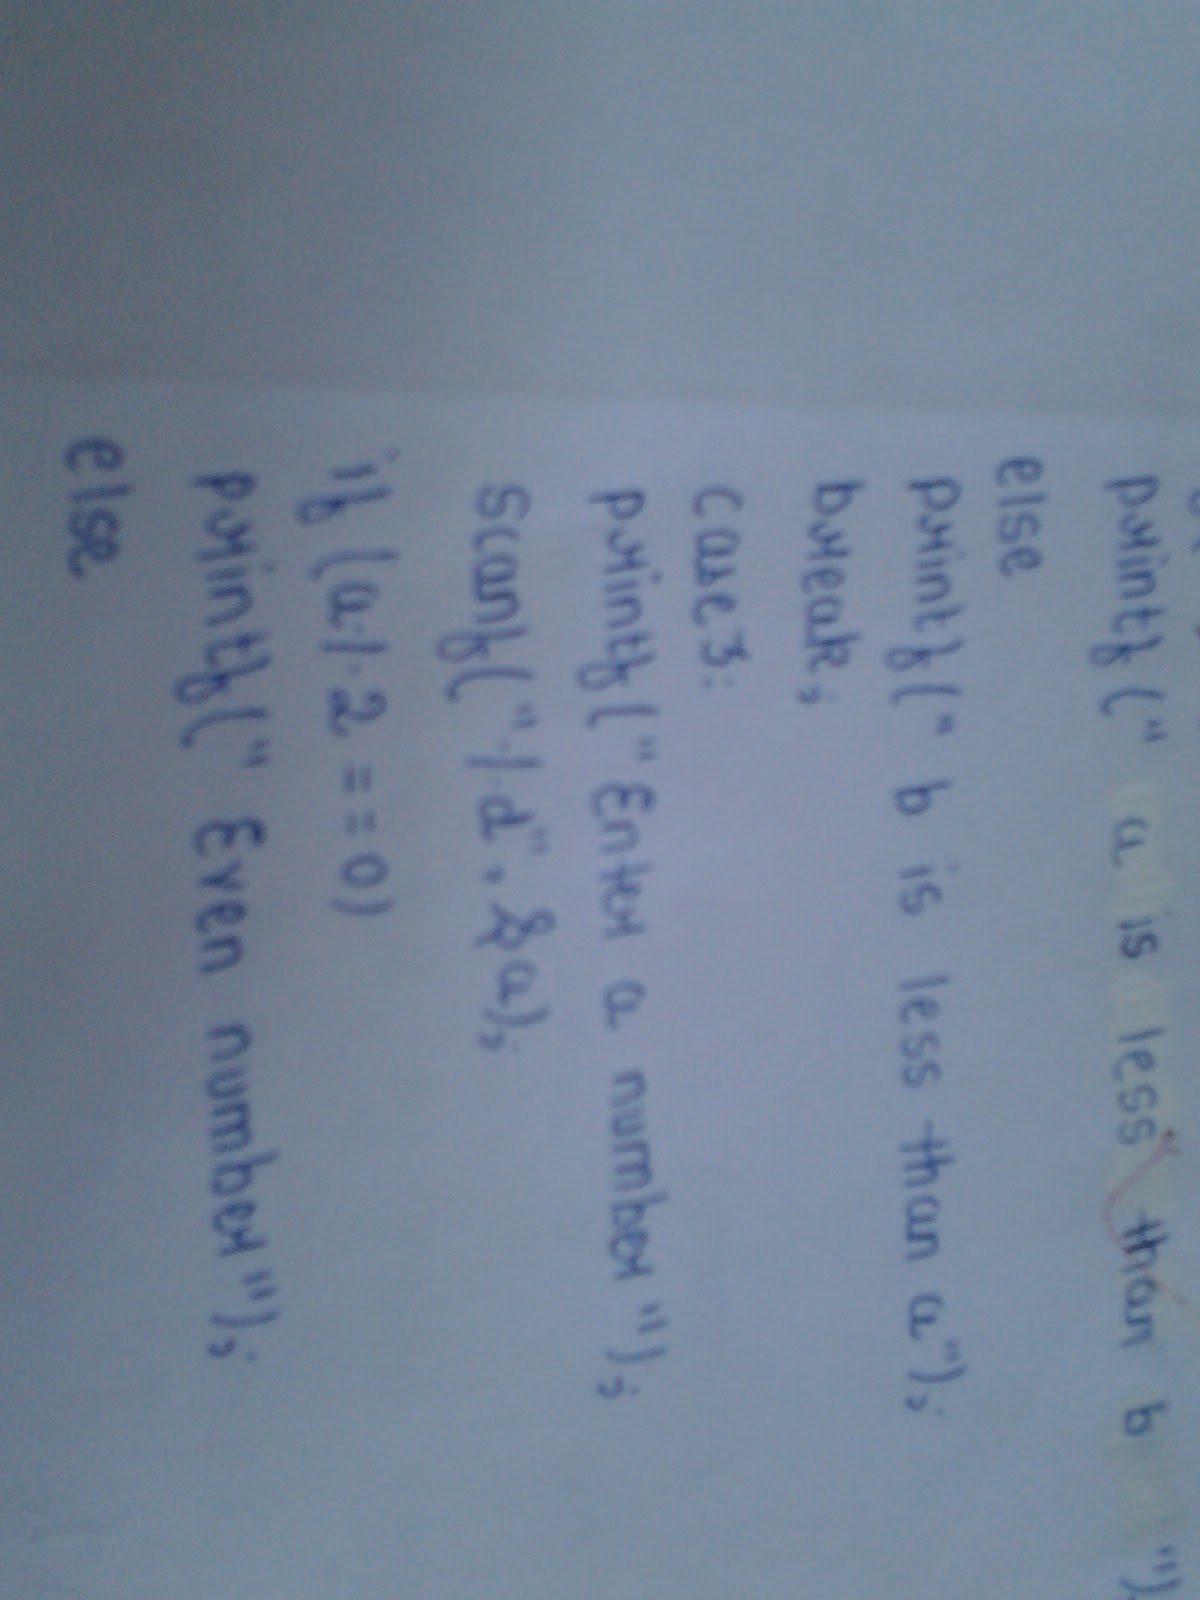 printf(" a is less than b ")
else
printf(" b is less than a");
break;
case 3:
printf("Enter a number");
scanf("%d", &a);
if (a%2 ==0)
printf(" Even number");
else